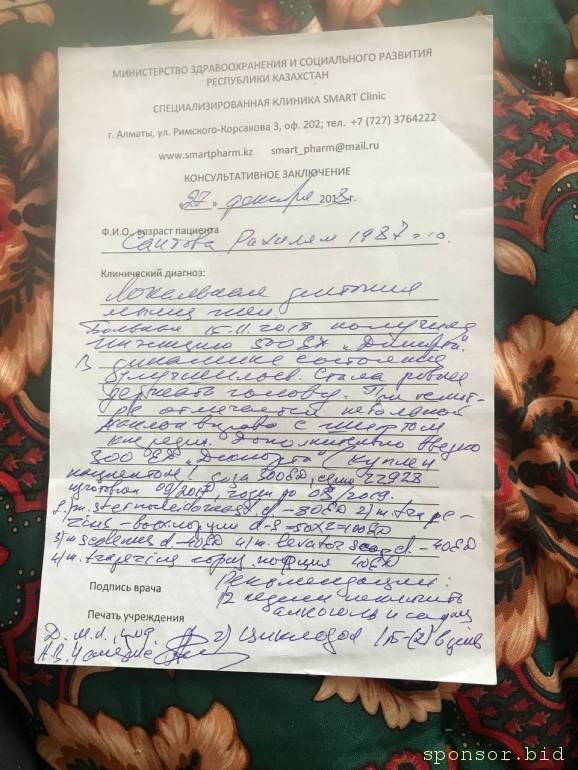 МИНИСТЕРСТВО ЗДРАВООХРАНЕНИЯ И СОЦИАЛЬНОГО РАЗВИТИЯ
РЕСПУБЛИКИ КАЗАХСТАН
СПЕЦИАЛИЗИРОВАННАЯ КЛИНИКА SMART Clinic
г. Алматы, ул. Римского-Корсакова 3, оф. 202; тел. +7 (727) 3764222
www.smartpharm.kz smart_pharm@mail.ru
КОНСУЛЬТАТИВНОЕ ЗАКЛЮЧЕНИЕ
«27» декабря 2018г.
Ф.И.О., возраст пациента
Саитова 1987 г.
Клинический диагноз:
Локальная дистония
мышц шеи
Больная 15.11.2018 получила
инъекцию 500 ЕД „Диспорта".
В динамике состояние
улучшилось. Стала ровнее
держать голову. При
отмечается небольшой
наклон вправо с
кпереди. Дополнительно введено
300 ЕД „Диспорта" (куплен
пациентом) 300ЕД, серия 22928
изготовлен 09/2017, годен до 08/2019.
1) m. sternocleidomast. d - 80ЕД 2) m. trape-
zius - d-s - 50x2=100ЕД
3) m scalenus d - 40ЕД 4) m. levator scap d. - 40ЕД
4) m. trapezius порция 40ЕД
Подпись врача
Рекомендации:
12 недель исключить
алкоголь и
Печать учреждения
Д.м.н.,
2) Циклодол